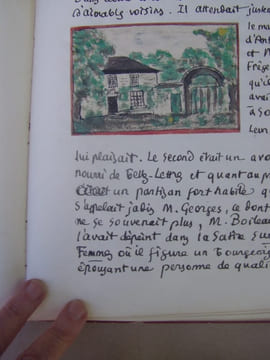 d'aimables voisins. Il attendait jusq
le ma
d'Ant
et M
Frége
qu'il
avai
à So
Leur
lui plaisait. Le second était un avo
nourri de Belles-Lettres et quant au p
c'était un partisan fort habile q
s'appelait jadis M. Georges, ce dont
ne se souvenait plus, M. Boileau
l'avait dépeint dans la Satire sur
Femmes où il figure un bourgeois
épousant une personne de quali